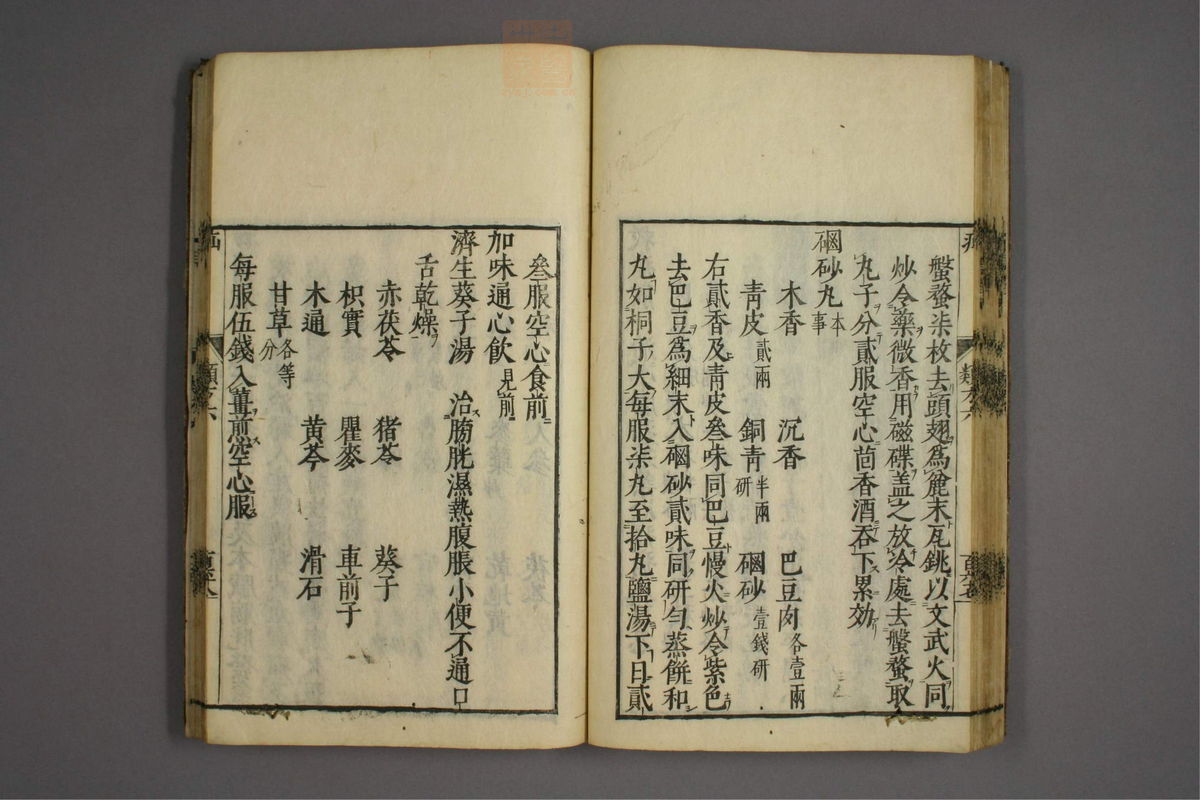 盤蝥柒枚去頭翅爲麄末瓦銚以文武火同
炒令藥微香用磁碟盖之放冷處去盤蝥取
丸子分貳服空心茴香酒吞下累効
硇砂丸本事
木香 沉香 巴豆肉各壹兩
青皮貳兩 銅青半兩研 硇砂壹錢研
右貳香及青皮叄味同巴豆慢火炒令紫色
去巴豆爲細末入硇砂貳味同研勻蒸餅和
丸如桐子大每服柒丸至拾丸鹽湯下日貳
叄服空心食前
加味通心飲見前
濟生葵子湯 治膀胱濕熱腹脹小便不通口
舌乾燥
赤茯苓 猪苓 葵子
枳實 瞿麥 車前子
木通 黃芩 滑石
甘草各等分
每服伍錢入薑煎空心服